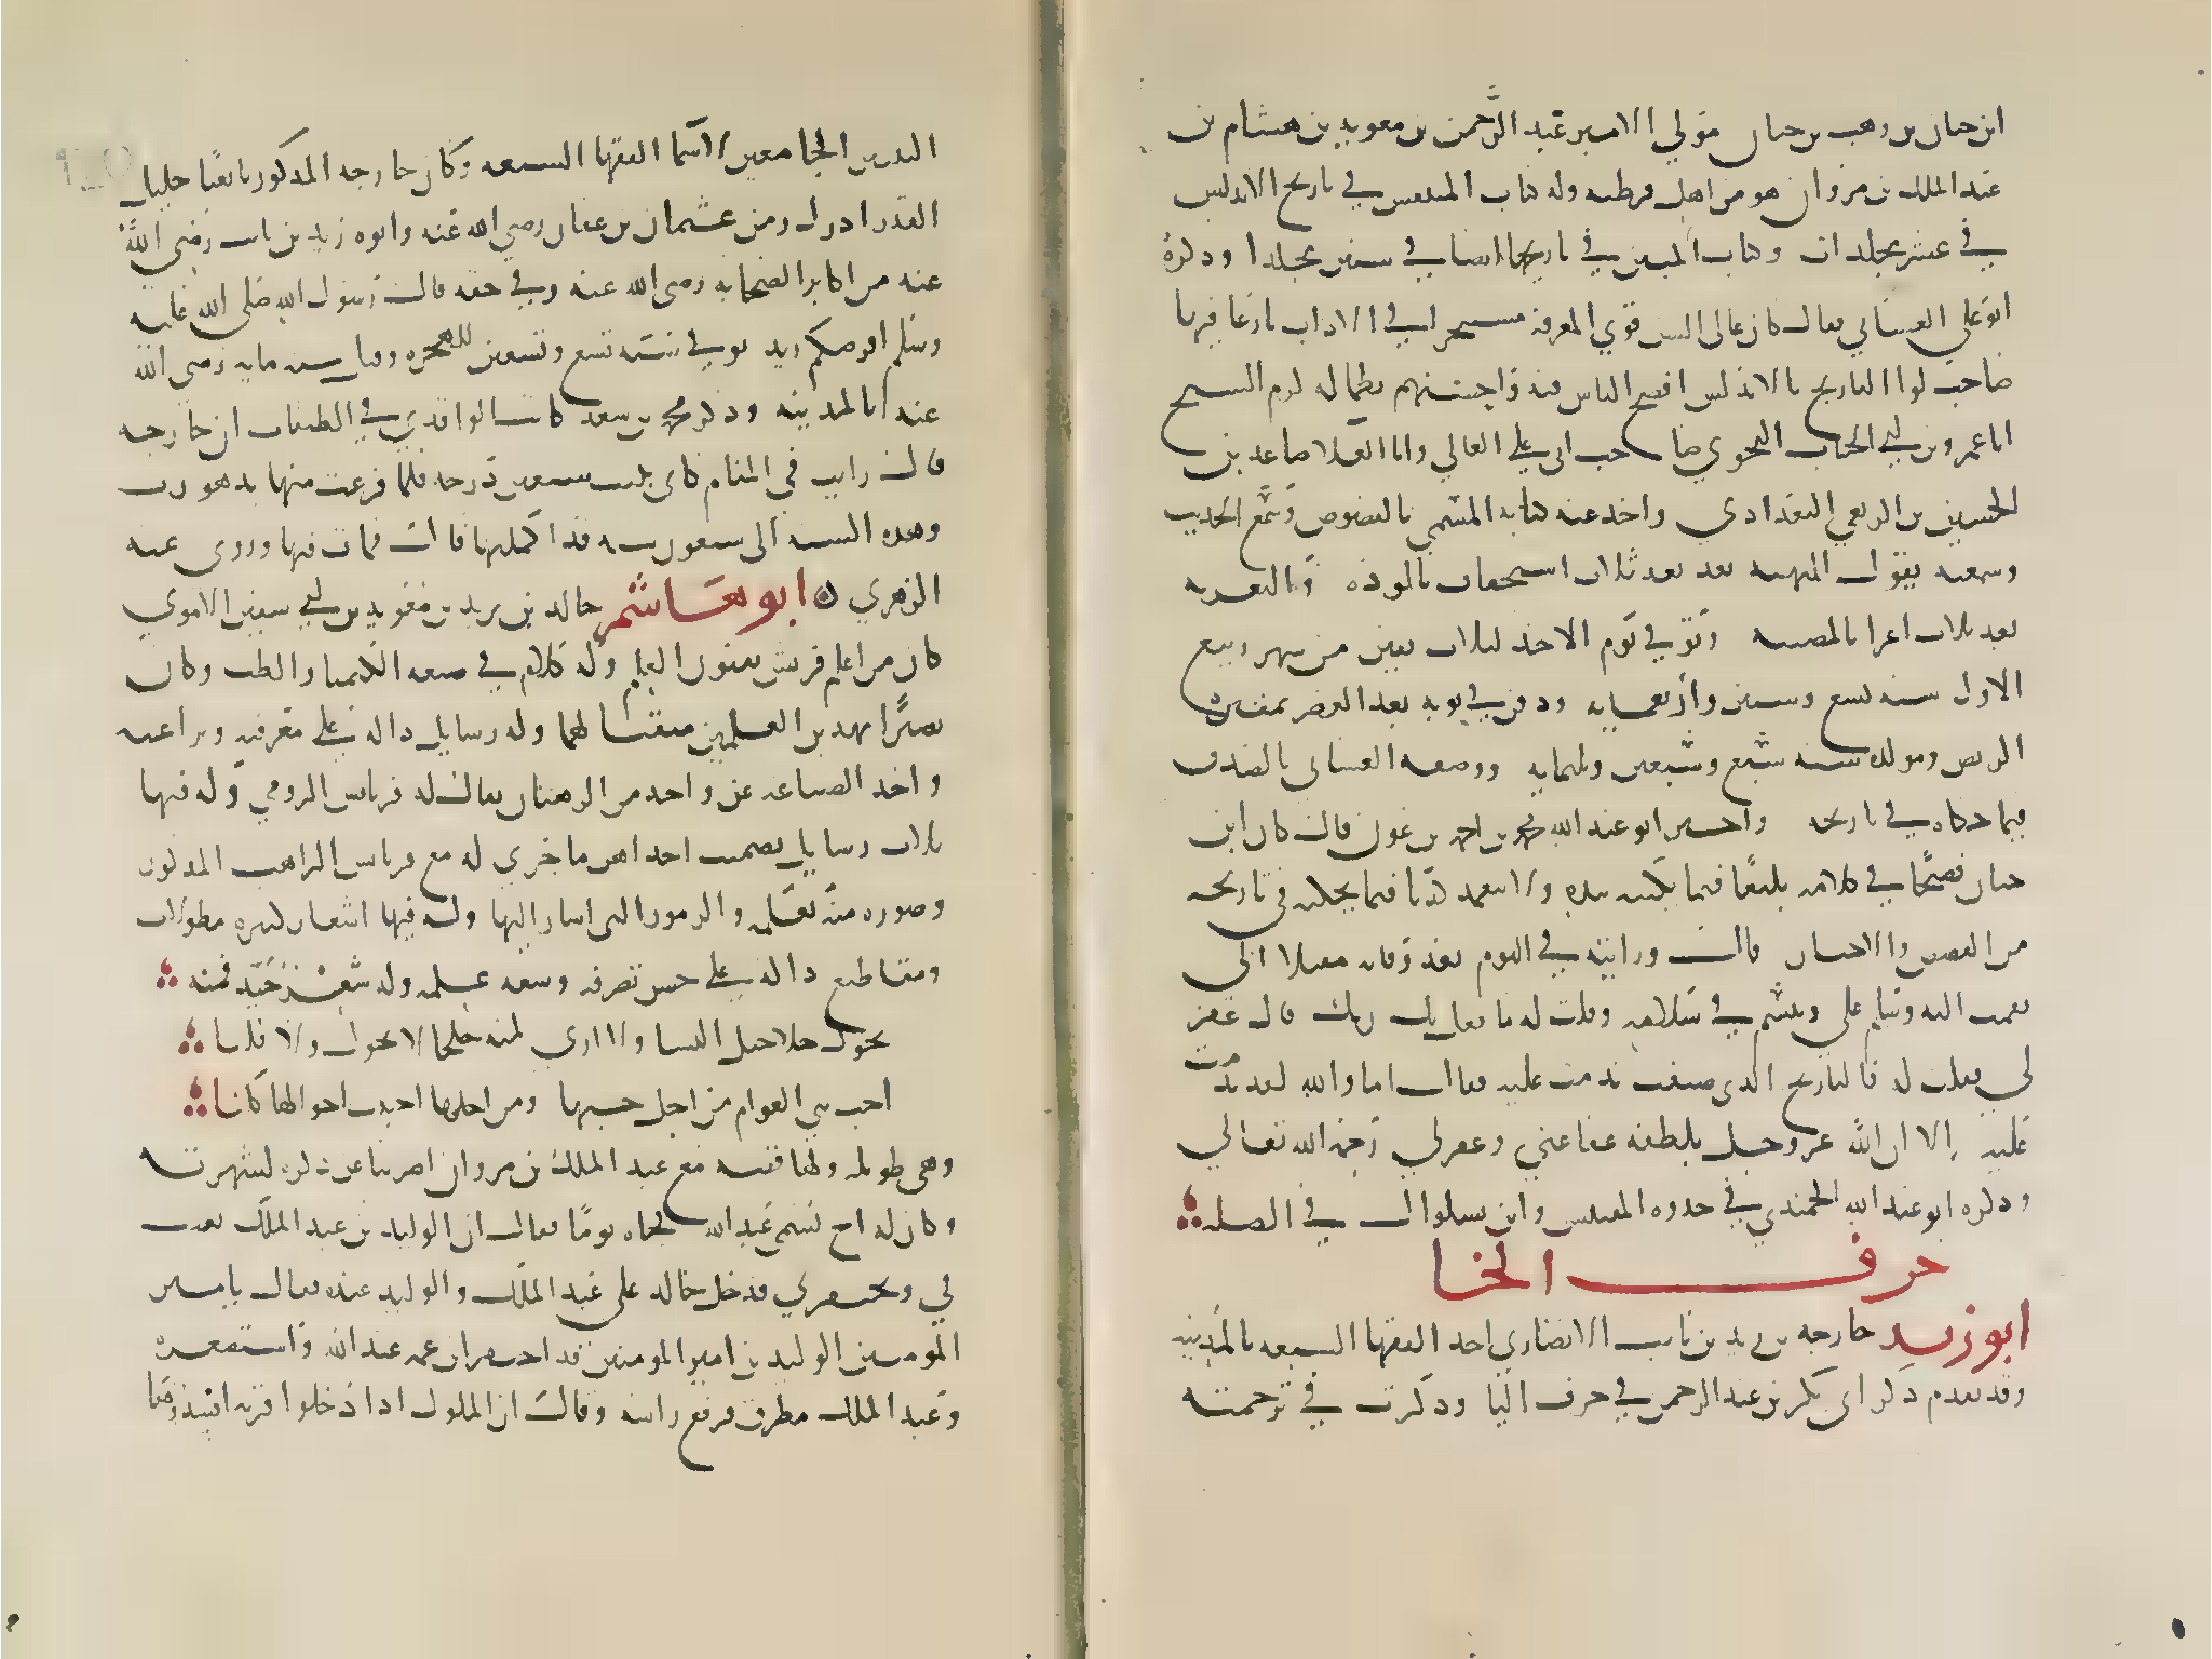 ابن حيان بن وهب بن حيان مولي الامير عبد الرحمن بن معويه بن هشام بن
عبد الملك بن مروان هو من اهل قرطبه وله كتاب المقتبس في تاريخ الاندلس
في عشر مجلدات وكتاب المبين في تاريخها ايضا في ستين مجلدا وذكره
ابو علي الغساني فقال كان عالي السن قوي المعرفة مستبحرا في الاداب بارعا فيها
صاحب لوا التاريخ بالاندلس افصح الناس فيه واحسنهم نظما له لزم الشيخ
ابا عمرو بن ابي الحباب النحوي صاحب ابي علي القالي وابا العلا صاعد بن
الحسين بن الربعي البغدادي واخذ عنه كتابه المسمي بالفصوص وسمع الحديث
وسمعته يقول التهنيه بعد ثلاث استخفاف بالموده والتعزيه
بعد ثلاث اغرا بالمصيبه وتوفي يوم الاحد لثلاث بقين من شهر ربيع
الاول سنه تسع وستين واربعمايه ودفن في يومه بعد العصر بمقبرة
الربض ومولده سنه سبع وسبعين وثلثمايه ووصفه الغساني بالصدق
فيما حكاه في تاريخه واخبر ابو عبد الله محمد بن احمد بن عون قال كان ابن
حيان فصيحا في كلامه بليغا فيما يكتبه بيده ولا يتعمد كذبا فيما يحكيه في تاريخه
من القصص والاخبار قال ورايته في النوم بعد وفاته مقبلا الي
فقمت اليه وسلم علي وتبسم في سلامه وقلت له ما فعل بك ربك قال غفر
لي فقلت له فالتاريخ الذي صنفت ندمت عليه فقال اما والله لقد ندمت
عليه الا ان الله عز وجل بلطفه عفا عني وغفر لي رحمه الله تعالي
وذكره ابو عبد الله الحميدي في جذوه المقتبس وابن بشكوال في الصله
حرف الخا
ابو زيد خارجه بن زيد بن ثابت الانصاري احد الفقها السبعه بالمدينه
وقد تقدم ذكر ابي بكر بن عبد الرحمن في حرف البا وذكرت في ترجمته
البيتين الجامعين لاسما الفقها السبعه وكان خارجه المذكور تابعيا جليل
القدر ادرك زمن عثمان بن عفان رضي الله عنه وابوه زيد بن ثابت رضي الله
عنه من اكابر الصحابه رضي الله عنه وفي حقه قال رسول الله صلى الله عليه
وسلم افرضكم زيد توفي سنه تسع وتسعين للهجره وقيل سنه مايه رضي الله
عنه بالمدينه وذكر محمد بن سعد كاتب الواقدي في الطبقات ان خارجه
قال رايت في المنام كاني بنيت سبعين درجه فلما فرغت منها تدهورت
وهذه السنه الي سبعون سنه قد اكملتها قال فمات فيها وروى عنه
الزهري ابو هاشم خالد بن يزيد بن معويه بن ابي سفين الاموي
كان من اعلم قريش بفنون العلم وله كلام في صنعه الكيميا والطب وكان
بصيرا بهذين العلمين متقنا لهما وله رسايل داله علي معرفته وبراعته
واخذ الصناعه عن واحد من الرهبان يقال له مرياس الرومي وله فيها
ثلاث رسايل تضمنت احداهن ما جري له مع مرياس الراهب المذكور
وصوره منه تعلمه والرموز التي اشار اليها وله فيها اشعار كثيره مطولات
ومقاطيع داله علي حسن تصرفه وسعه علمه وله شعر جيد فمنه
تجول خلاخيل النسا ولا اري لرمله خلخالا تجول ولا قلبا
احب بني العوام من اجل حبها ومن اجلها احببت اخوالها كلبا
وهي طويله ولها قصه مع عبد الملك بن مروان اضربنا عن ذكره لشهرته
وكان له اخ يسمي عبد الله فجاه يوما فقال ان الوليد بن عبد الملك يعبث
لي ويحتقرني فدخل خالد علي عبد الملك والوليد عنده فقال يا امير
المومنين الوليد بن امير المومنين قد احتقر ابن عمه عبد الله واستصغره
وعبد الملك مطرق فرفع راسه وقال ان الملوك اذا دخلوا قريه افسدوها